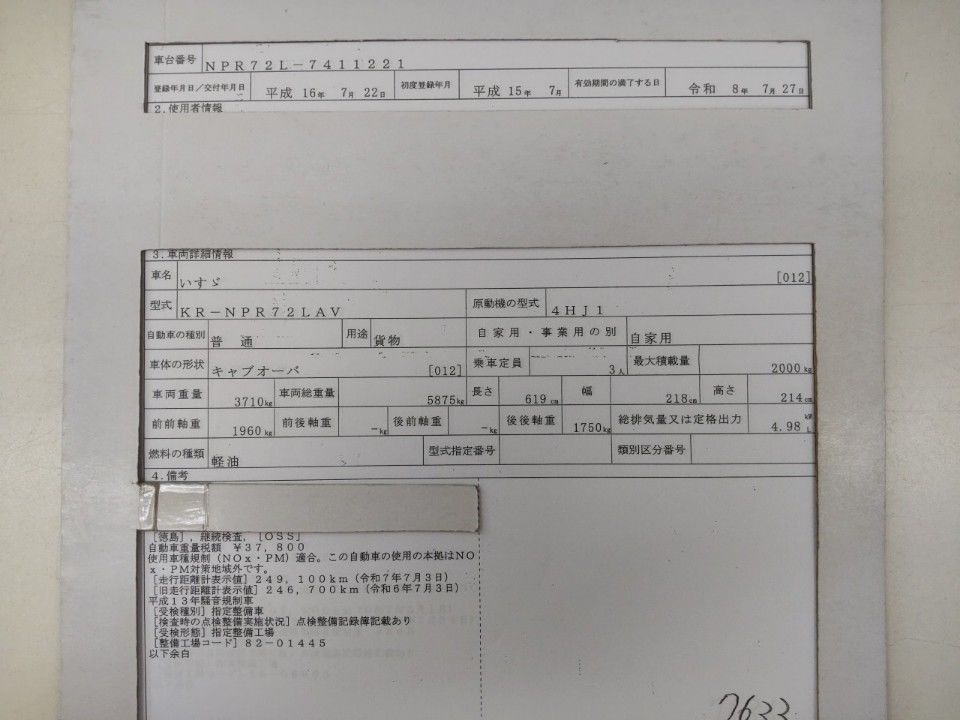 車台番号 NPR72L-7411221
登録年月日/交付年月日 平成 16年 7月 22日 初度登録年月 平成 15年 7月 有効期間の満了する日 令和 8年 7月 27日
2.使用者情報
3.車両詳細情報
車名 いすゞ [012]
型式 KR-NPR72LAV 原動機の型式 4HJ1
自動車の種別 普通 用途 貨物 自家用・事業用の別 自家用
車体の形状 キャブオーバ [012] 乗車定員 3人 最大積載量 2000kg
車両重量 3710kg 車両総重量 5875kg 長さ 619cm 幅 218cm 高さ 214cm
前前軸重 1960kg 前後軸重 -kg 後前軸重 -kg 後後軸重 1750kg 総排気量又は定格出力 4.98 kW L
燃料の種類 軽油 型式指定番号 類別区分番号
4.備考
[徳島],継続検査,[OSS]
自動車重量税額 ¥37,800
使用車種規制(NOx・PM)適合。この自動車の使用の本拠はNO
x・PM対策地域外です。
[走行距離計表示値]249,100km(令和7年7月3日)
[旧走行距離計表示値]246,700km(令和6年7月3日)
平成13年騒音規制車
[受検種別]指定整備車
[検査時の点検整備実施状況]点検整備記録簿記載あり
[受検形態]指定整備工場
[整備工場コード]82-01445
以下余白
7633